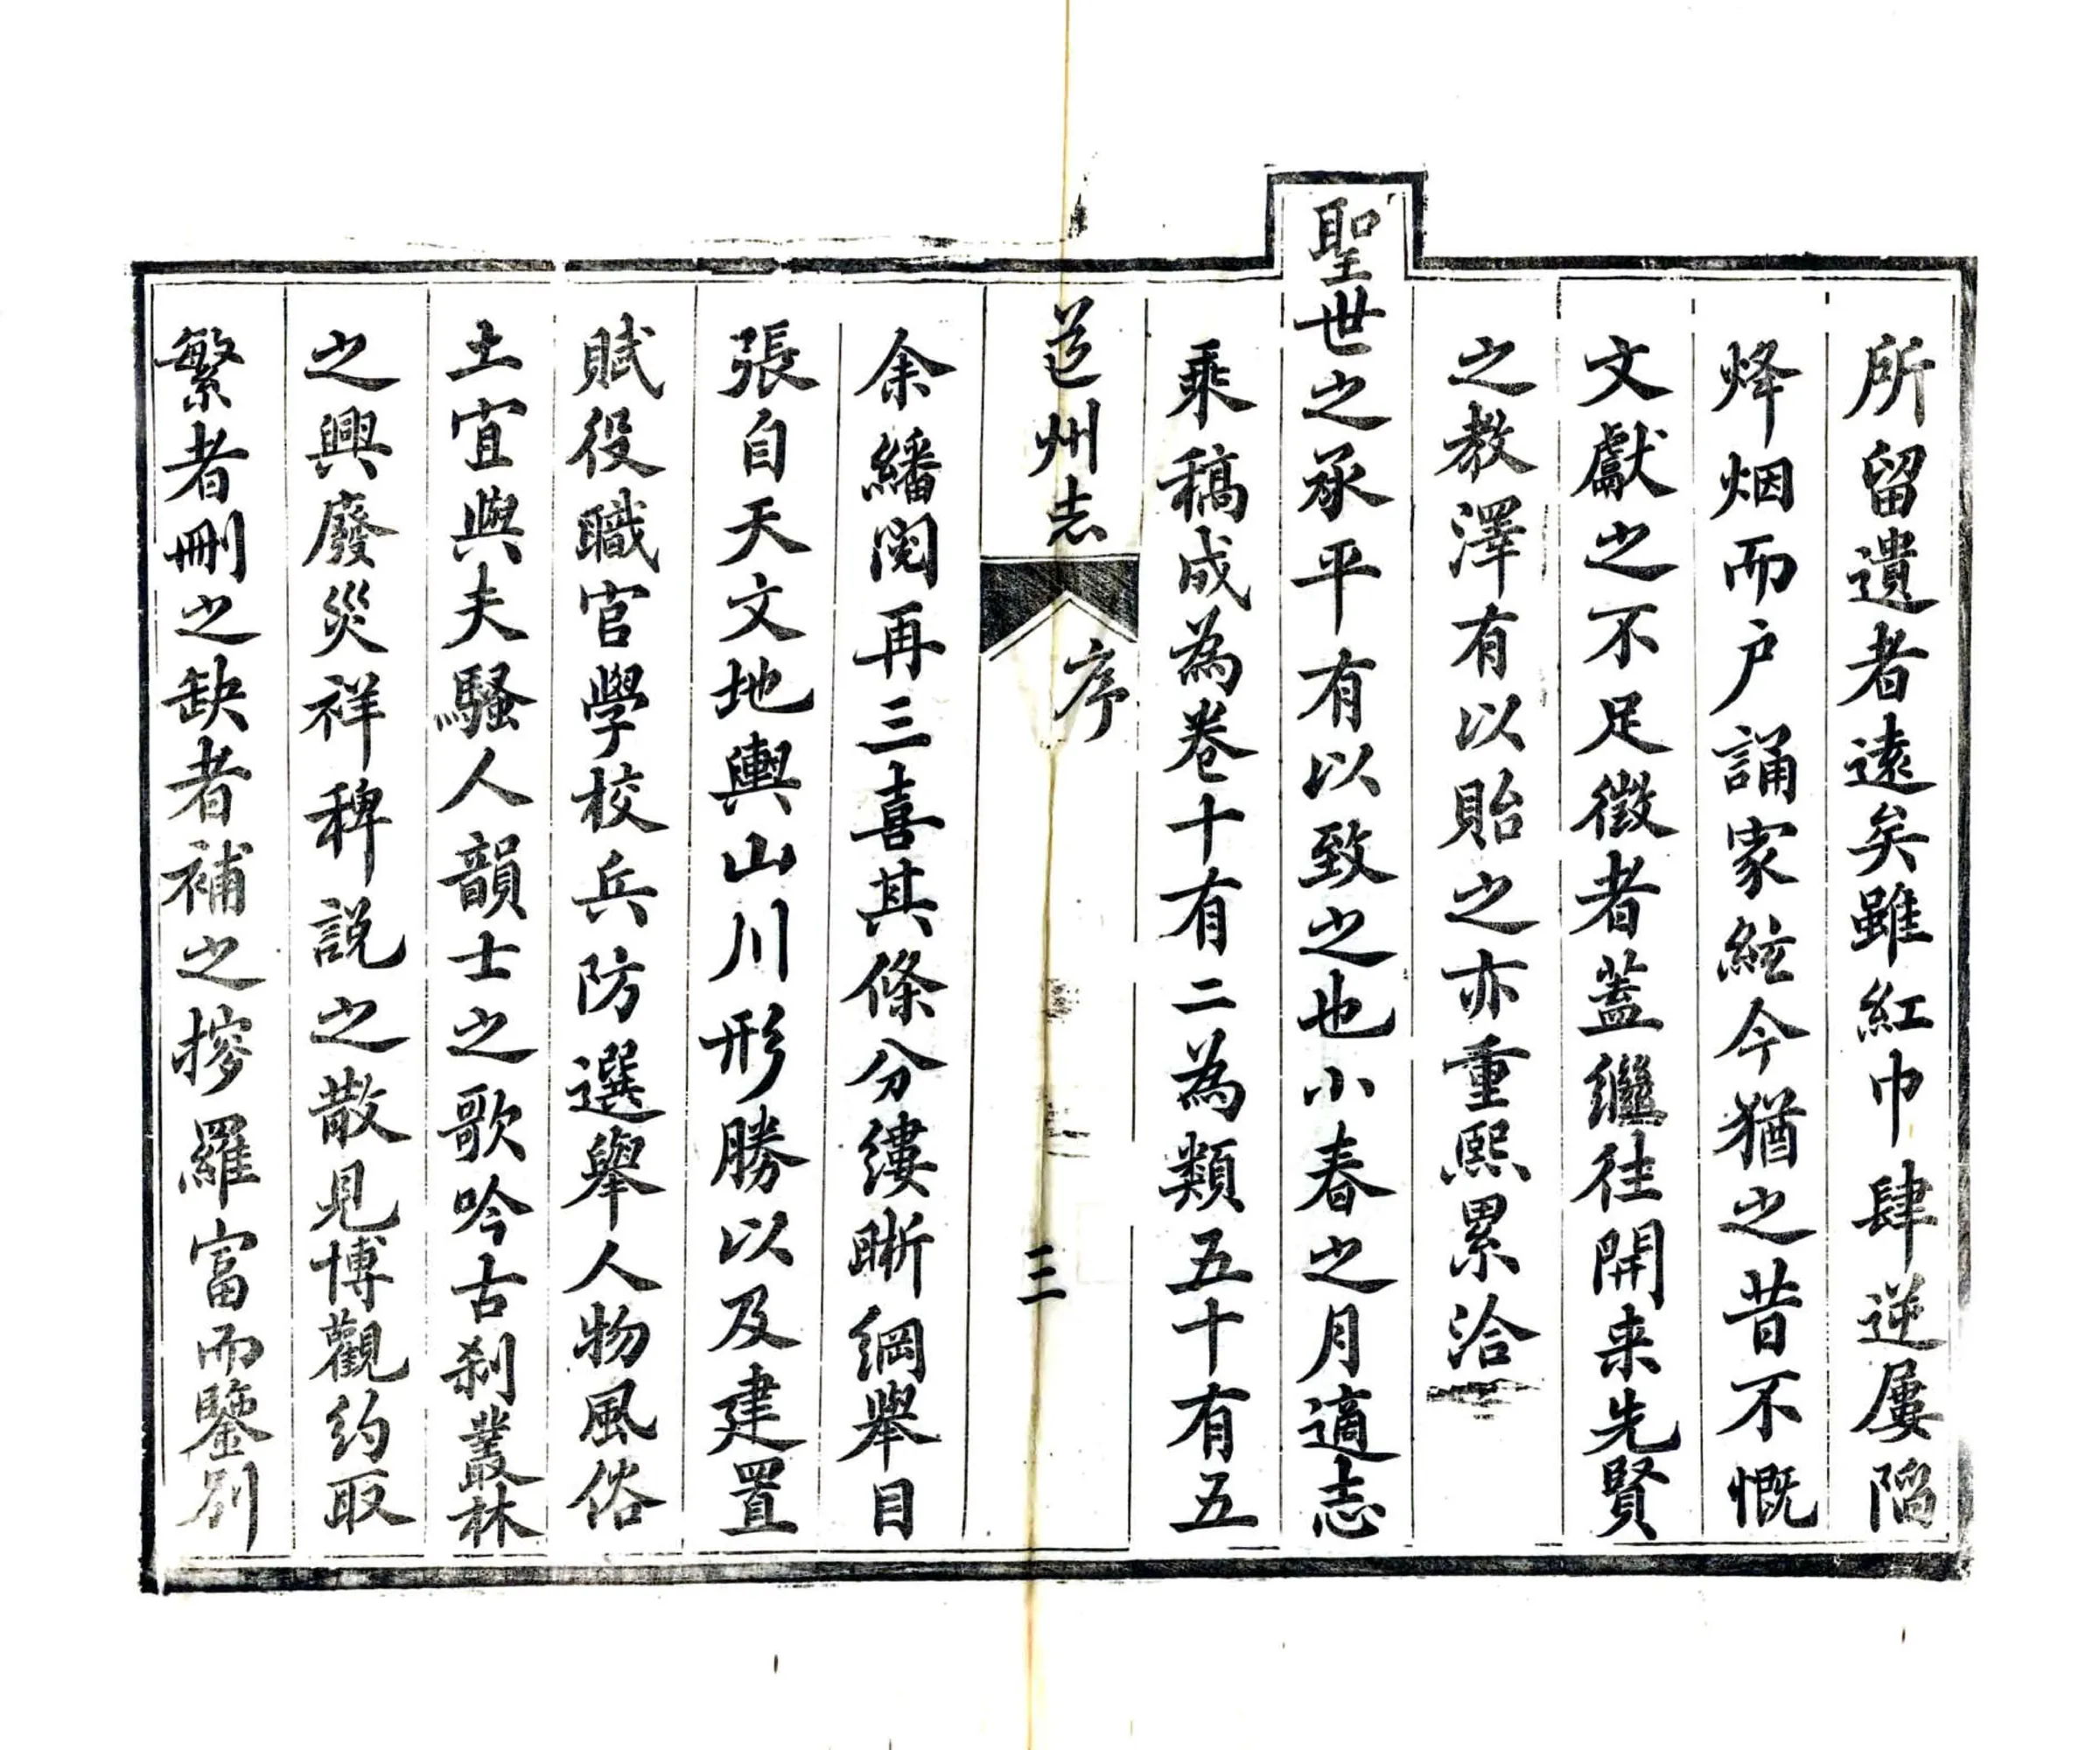 所留遺者遠矣雖紅巾肆逆屢陷
烽烟而户誦家絃今猶之昔不慨
文獻之不足徵者蓋繼徃開来先賢
之教澤有以貽之亦重熙累洽
聖世之承平有以致之也小春之月適志
乘稿成為卷十有二為類五十有五
道州志
序
三
余繙閱再三喜其條分縷晰綱舉目
張自天文地輿山川形勝以及建置
賦役職官學校兵防選舉人物風俗
土宜與夫騷人韻士之歌吟古刹叢林
之興廢災祥稗説之散見博觀約取
繁者刪之缺者補之搜羅富而鑒别